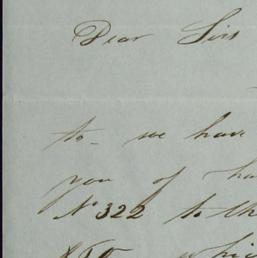 Dear Sirs
to- we have
you of ha
No 322 to th